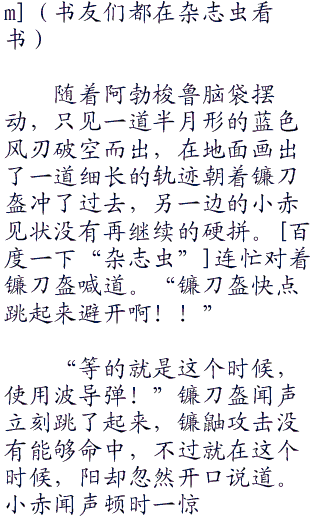 m] (书友们都在杂志虫看
书)
随着阿勃梭鲁脑袋摆
动，只见一道半月形的蓝色
风刃破空而出，在地面画出
了一道细长的轨迹朝着镰刀
盔冲了过去，另一边的小赤
见状没有再继续的硬拼。[百
度一下“杂志虫”]连忙对着
镰刀盔喊道。“镰刀盔快点
跳起来避开啊！！”
“等的就是这个时候，
使用波导弹！”镰刀盔闻声
立刻跳了起来，镰鼬攻击没
有能够命中，不过就在这个
时候，阳却忽然开口说道。
小赤闻声顿时一惊